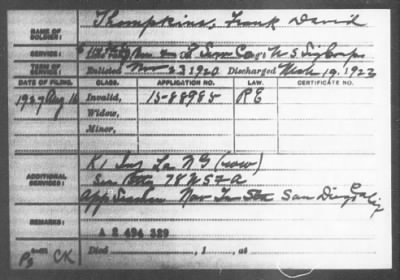 NAME OF SOLDIER: Thompkins, Frank David
SERVICE: Serv Co, U S Sig Corps
TERM OF SERVICE: Enlisted Nov 23 1920 Discharged Mch 19, 1922
DATE OF FILING. CLASS. APPLICATION NO. LAW. CERTIFICATE NO.
1927 Aug 16 Invalid, 15-88985 R E
Widow,
Minor,
ADDITIONAL SERVICES: K1 Inf La N G (now)
78
App Seaman Nav Tr Sta San Diego Calif
REMARKS: A 2 494 329
Died , 1 , at
CK